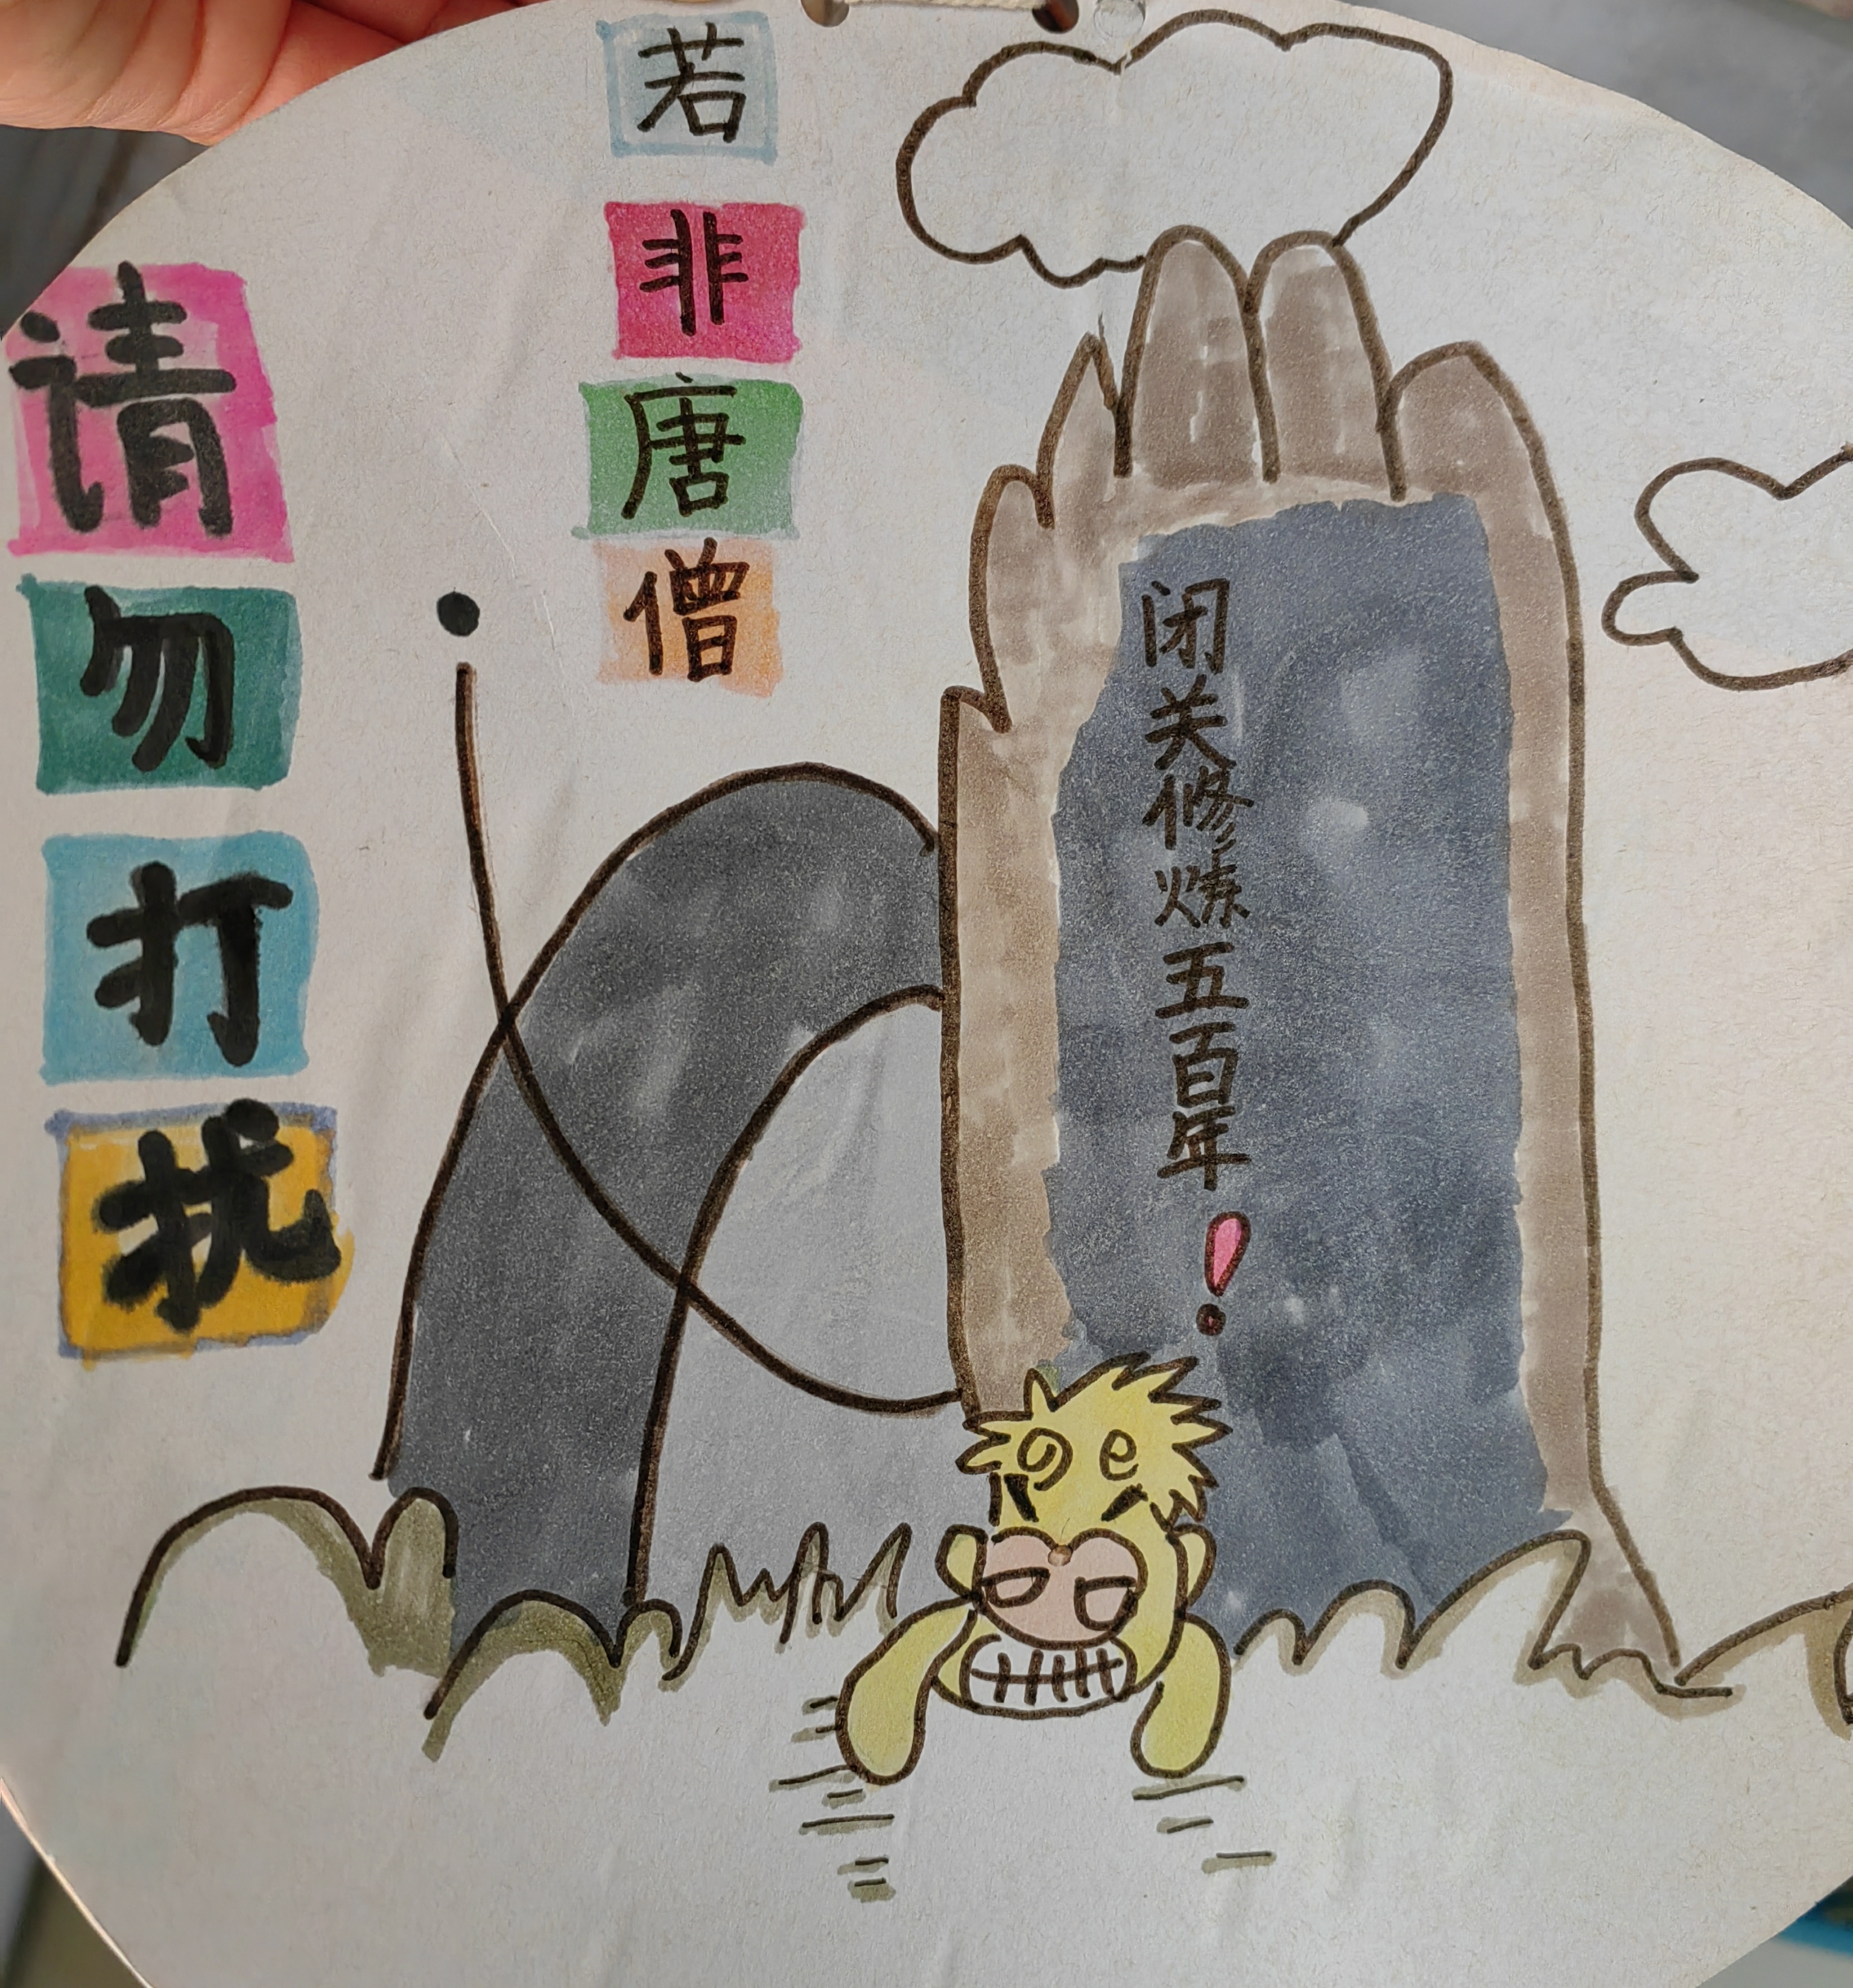 若非唐僧
请勿打扰
闭关修炼五百年!